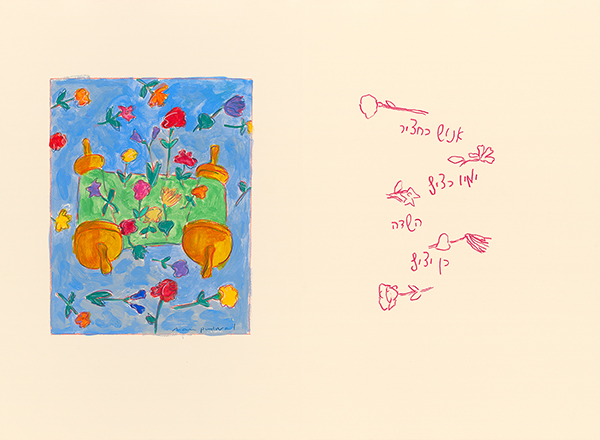 אנוש כחציר
ימיו כציץ
השדה
כן יציץ